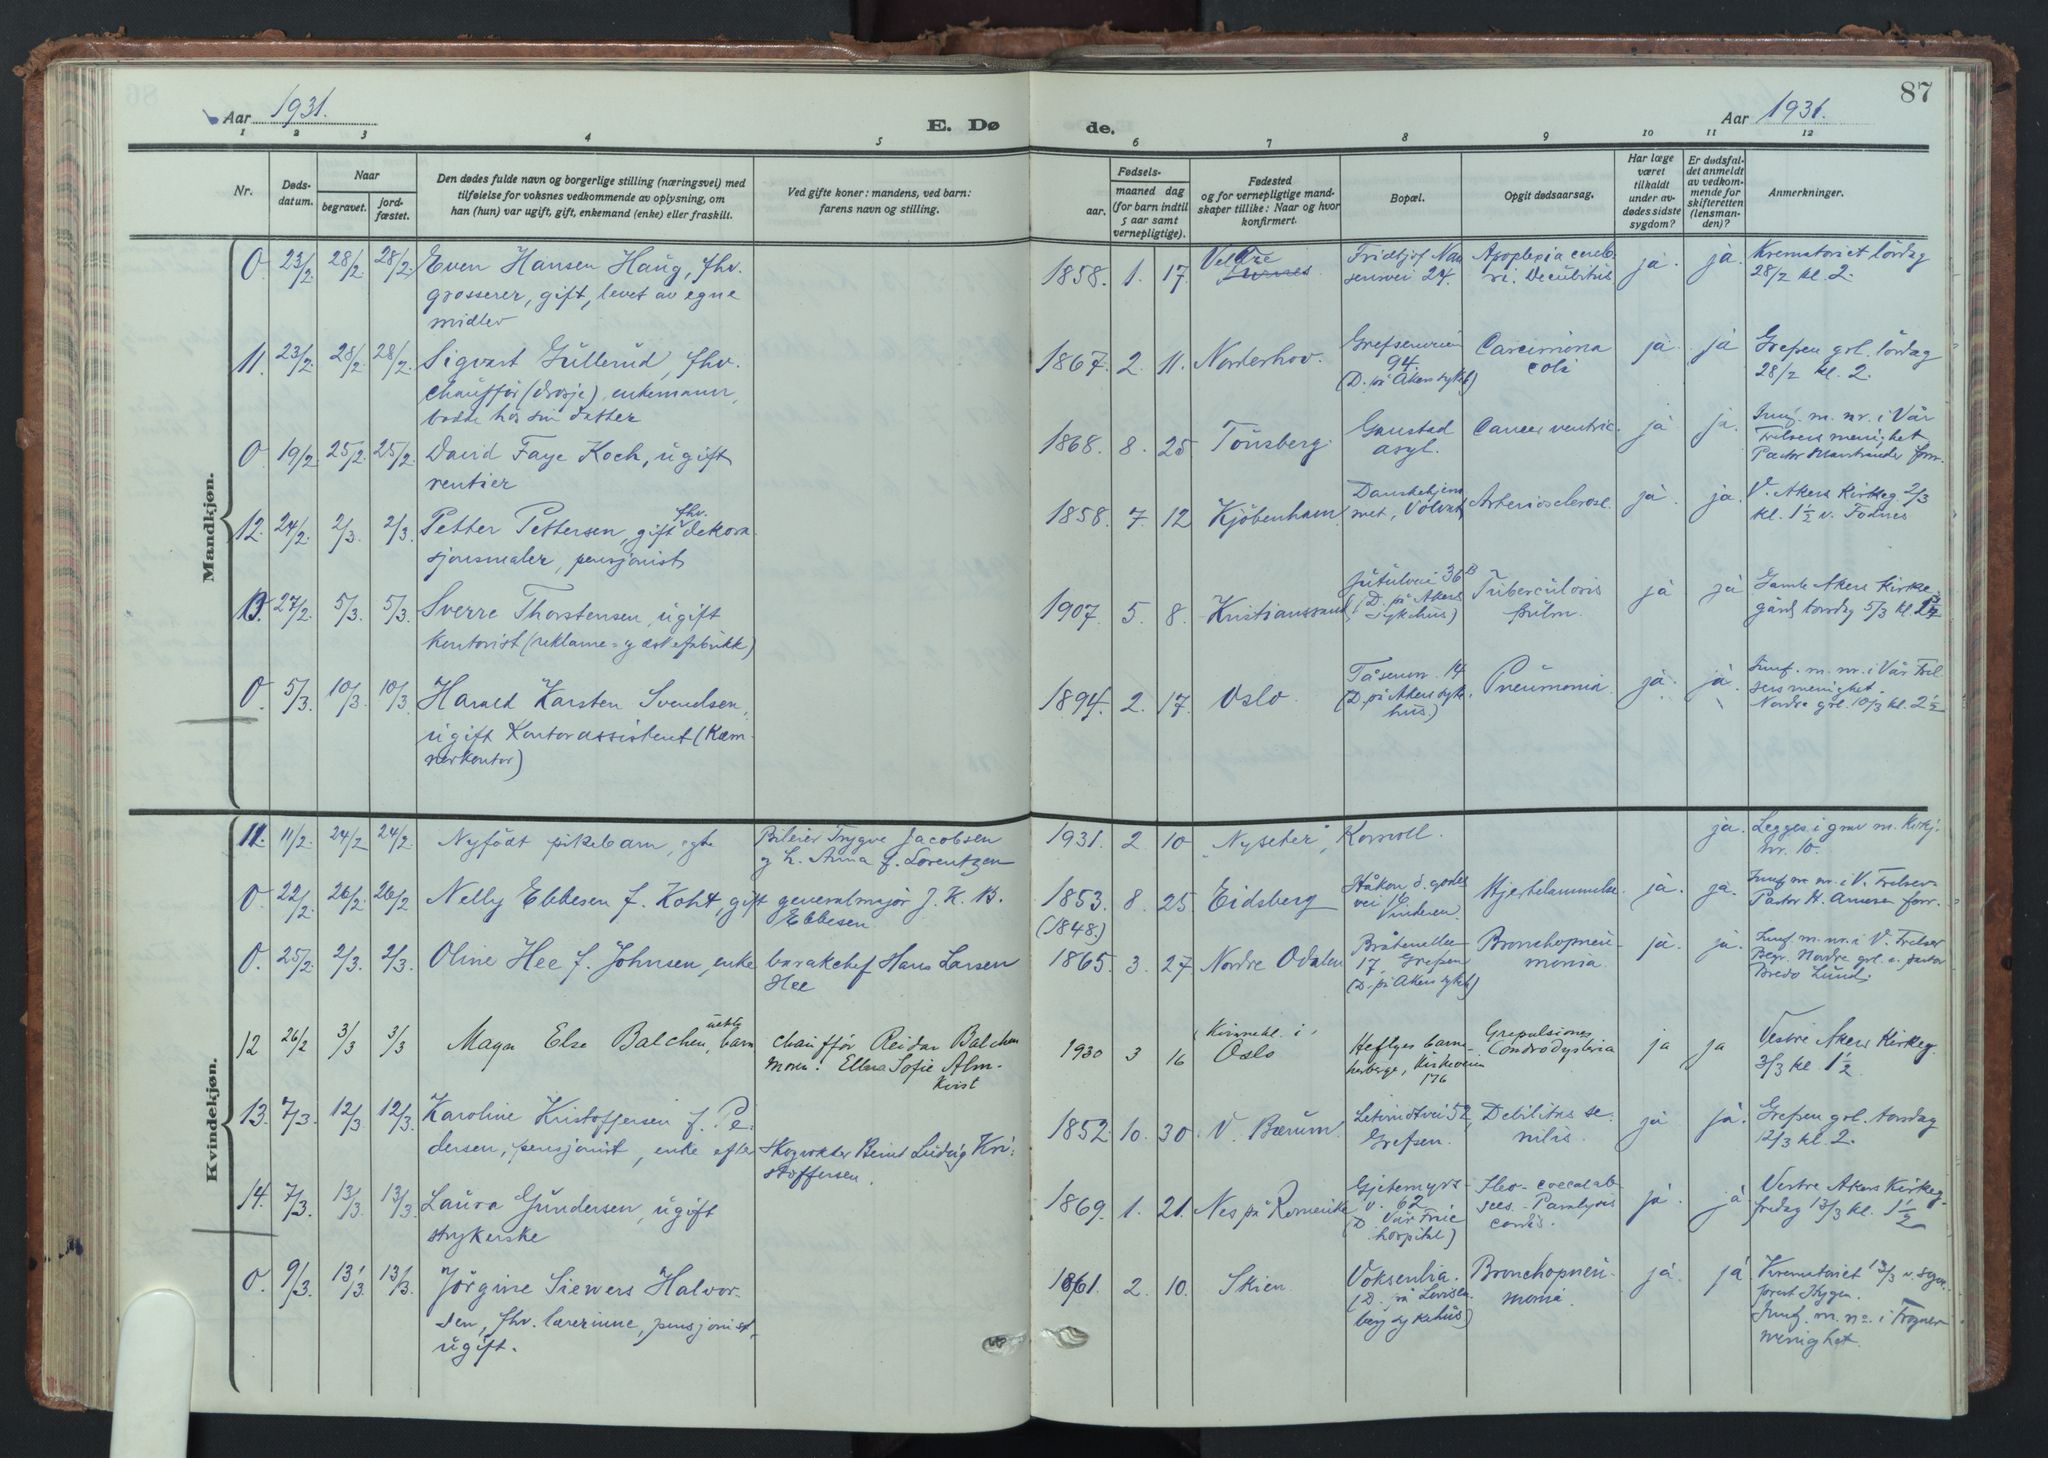 87
Aar 1931.
E. Dø de.
Aar 1931.
1 2 3 4 5 6 7 8 9 10 11 12
Nr.
Døds-
datum.
Naar
begravet.
jord-
fæstet.
Den dødes fulde navn og borgerlige stilling (næringsvei) med
tilføielse for voksnes vedkommende av oplysning, om
han (hun) var ugift, gift, enkemand (enke) eller fraskilt.
Ved gifte koner: mandens, ved barn:
farens navn og stilling.
Fødsels-
aar.
maaned dag
(for barn indtil
5 aar samt
vernepligtige).
Fødested
og for vernepligtige mand-
skaper tillike: Naar og hvor
konfirmert.
Bopæl.
Opgit dødsaarsag.
Har læge
været
tilkaldt
under av-
dødes sidste
sygdom?
Er dødsfal-
det anmeldt
av vedkom-
mende for
skifteretten
(lensman-
den)?
Anmerkninger.
Mandkjøn.
0. 23/2. 28/2. 28/2. Even Hansen Haug, fhv.
grosserer, gift, levet av egne
midler
1858. 1. 17. Veldre
Fridtjof Nan
senvei 24.
Apoplexia cereb
ri. Decubitus
ja. ja.
Krematoriet lördag
28/2 kl. 2.
11. 23/2. 28/2. 28/2. Sigvart Gullerud, fhv.
chauffør (drosje), enkemann,
bodde hos sin datter
1867. 2. 11. Norderhov.
Grefsenveien
94.
(D. på Aker sykh)
Carcinoma
coli
ja ja
Grefsen grl. lördag
28/2 kl. 2.
0. 19/2. 25/2. 25/2. David Faye Koch, ugift
rentier
1868. 8. 25. Tönsberg.
Gaustad
asyl.
Cancer ventric.
ja ja.
Innf. m. nr. i Vår
Frelsers menighet
Pastor Marstrander forr.
12. 24/2. 2/3. 2/3. Petter Pettersen, gift fhv. dekora
sjonsmaler, pensjonist
1858. 7. 12. Kjöbenhavn
Danskehjem
met, Volvat
Arteriosclerose
ja ja.
V. Akers Kirkeg. 2/3
kl. 1½ v. Fodnes
13. 27/2. 5/3. 5/3. Sverre Thorstensen, ugift
kontorist (reklame- og eskefabrikk)
1907. 5. 8. Kristianssand
Jutulvei 36 B
(D. på Akers
sykehus)
Tuberculosis
pulm.
ja ja
Gamle Akers Kirke
gård torsdag 5/3 kl.
0. 5/3. 10/3. 10/3. Harald Karsten Svendsen,
ugift Kontorassistent (Kæm-
nerkontor)
1894. 2. 17. Oslo
Tåsenvn. 14
(D. på Akers syke
hus)
Pneumonia.
ja. ja.
Innf. m. nr. i Vår Frel
sers menighet.
Nordre grl. 10/3 kl. 2½
Kvindekjøn.
11. 11/2. 24/2 24/2. Nyfødt pikebarn, egte
Bileier Trygve Jacobsen
og h. Anna f. Lorentzen
1931. 2 10 "Nyseter", Korsvoll.
ja.
Legges i grav m. Kirkj.
nr. 10.
0. 22/2. 26/2. 26/2 Nelly Ebbesen f. Koht, gift
generalmajor J. K. B.
Ebbesen
1853. 8. 25. Eidsberg
(1848.)
Håkon d. godes
vei 16
Vinderen.
Hjertelammelse.
ja. ja.
Innf. m. nr. i V. Frelser
Pastor H. Arnesen forr.
0. 25/2. 2/3. 2/3. Oline Hee f. Johnsen, enke
barakchef Hans Larsen
Hee
1865. 3. 27 Nordre Odalen
17, Grefsen
(D. på Aker sykh)
Bronchopneu-
monia.
ja. ja.
Innf. m. nr. i V. Frelser
Begr. Nordre grl. v. pastor
Bredo Lund.
12 26/2 3/3 3/3 Maya Else Balchen, uekte barn
chauffør Reidar Balchen
moren: Ellna Sofie Alm-
kvist
1930 3 16 Kvinnekl. i
Oslo
Heftyes barne-
herberge, Kirkeveien
176
Condrodysteria
ja ja
Vestre Akers Kirkeg.
3/3 kl. 1½.
13. 7/3. 12/3. 12/3. Karoline Kristoffersen f. Pe-
dersen, pensjonist, enke efter
Skogvokter Bernt Ludvig Kri-
stoffersen.
1852. 10. 30. V. Bærum.
52,
Grefsen.
Debilitas se-
nilis.
ja ja.
Grefsen grl. torsdag
12/3 kl. 2.
14. 7/3. 13/3. 13/3. Laura Gundersen, ugift
strykerske
1869. 1. 21. Nes på Romerike
Gjetemyrs-
v. 62
(D. Vår Frue
hospital)
Ileo-coecal ab-
sces. Paralysis
cordis.
ja. ja
Vestre Akers Kirkeg.
fredag 13/3 kl. 1½
0. 9/3. 13/3. 13/3. Jørgine Siewers Halvor-
sen, fhv. lærerinne, pensjonist,
ugift.
1861. 2. 10. Skien.
Voksenlia.
(D. på Lovisen
berg sykehus)
Bronchopneu-
monia.
ja. ja
Krematoriet 13/3 v. sogne
prest Hygen.
Innf. m. nr. i Frogner
menighet.